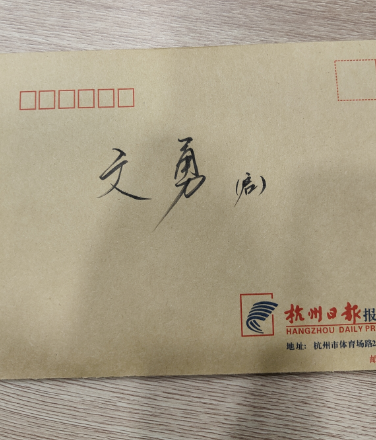 文勇(启)
杭州日报报
HANGZHOU DAILY PR
地址：杭州市体育场路2